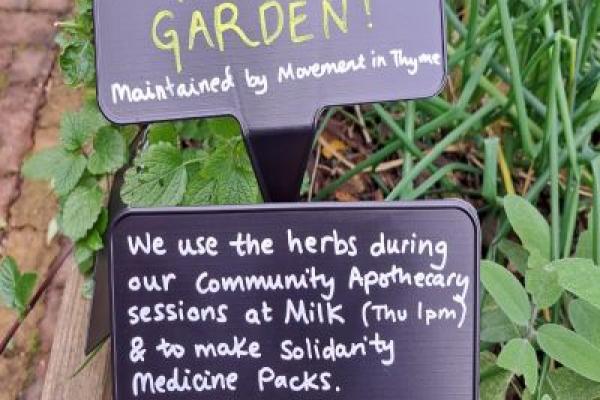 GARDEN!
Maintained by Movement in Thyme
We use the herbs during
our Community Apothecary
sessions at Milk (Thu 1pm)
& to make Solidarity
Medicine Packs.